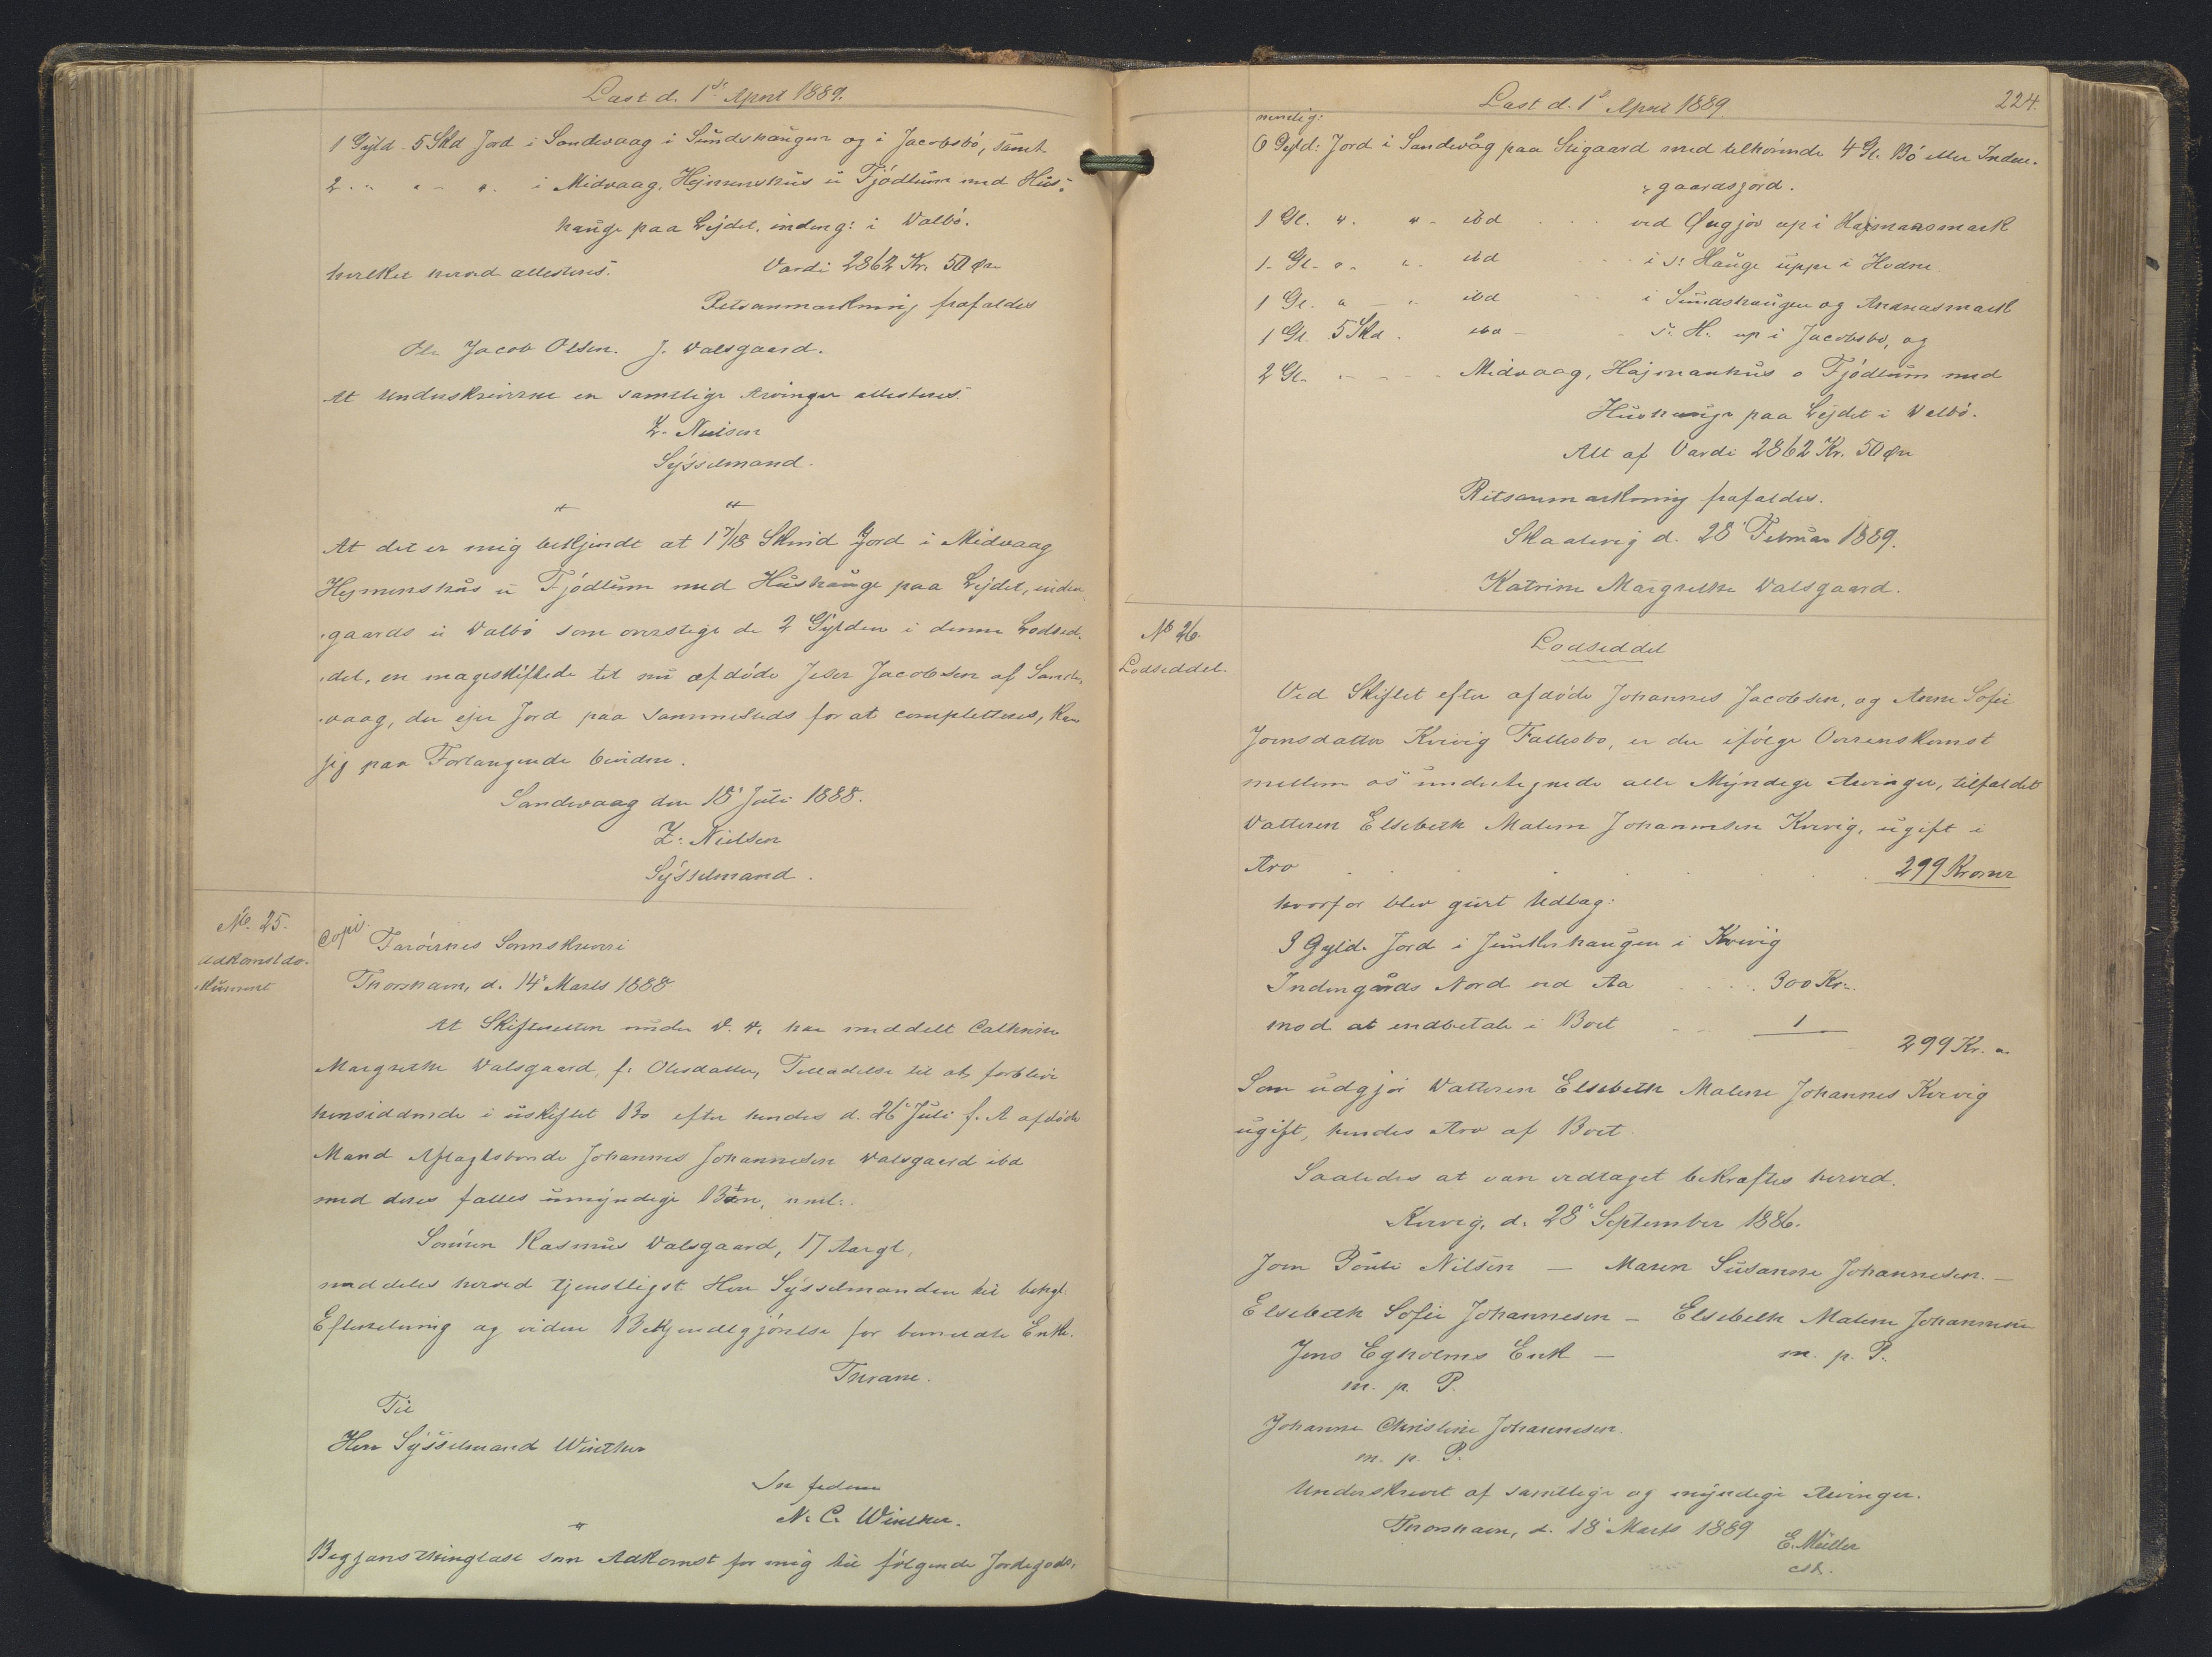 Læst d. 1ste April 1889.
1 Gyld. 5 Skd Jord i Sandevaag i Sundshaugen og i Jacobsbö, samt
2 " " " i Midvaag, Hejmenshus u Tjödlum med Hus-
hauge paa Lejdet, indeng: i Valbö.
hvilket herved attesteres. Værdi 2862 Kr. 50 Øre
Retsanmærkning frafaldes
Ole Jacob Olsen. J. Valsgaard.
At Underskriverne er samtlige Arvinger attesteres.
Z. Nielsen
Sysselmand.
At det er mig bekjendt at 1 7/18 Skind Jord i Midvaag
Hejmenshus u Tjödlum med Hushauge paa Lejdet, inden-
gaards u Valbö som overstige de 2 Gylden i denne Lodsed-
del, er mageskiftede til nu afdöde Jeser Jacobsen af Sande-
vaag, der ejer Jord paa sammesteds for at completteres, kan
jeg paa Forlangende bevidne.
Sandevaag den 18' Juli 1888.
Z. Nielsen
Sysselmand.
No. 25.
Adkomstdo-
kument
Copi.
Færöernes Sorenskriveri
Thorshavn, d. 14' Marts 1888
At Skifteretten under D. D. har meddelt Cathrine
Margrethe Valsgaard, f. Olesdatter, Tilladelse til at forblive
hensiddende i uskiftet Bo efter hendes d. 26' Juli f. A afdöde
Mand Aftægtsbonde Johannes Johannesen Valsgaard ibd
med deres fælles umyndige Barn, nml:
Sönnen Rasmus Valsgaard, 17 Aar gl,
meddeles herved tjenstligst Herr Sysselmanden til behgl.
Efterretning og videre Bekjendtgjörelse for bemeldte Enke.
Thrane.
Til
Herr Sysselmand Winther
In fidem
N. C. Winther.
Begjæres thinglæst som Adkomst for mig til fölgende Jordegods,
Læst d. 1ste April 1889. 224.
nemlig:
6 Gyld: Jord i Sandevåg paa Stigaard med tilhörende 4 Gl. Bö eller Inden-
gaardsjord.
1 Gl. " " ibd ved Øugjov up i Hajmansmark
1 Gl. " " ibd i S: Hauge uppe i Hodne
1 Gl. " " ibd i Sundshaugen og Andreasmark
1 Gl. 5 Skd. ibd S. H. up i Jacobsbö, og
2 Gl. Midvaag, Hajmanhus o Tjödlum med
Hushauge paa Lejdet i Valbö.
Alt af Værdi 2862 Kr. 50 Øre
Retsanmærkning frafaldes.
Skaalevig d. 28' Februar 1889.
Katrine Margrethe Valsgaard.
No 26.
Lodseddel.
Lodseddel
Ved Skiftet efter afdöde Johannes Jacobsen, og Anne Sofie
Joensdatter Kvivig Fallesbo, er der ifölge Overenskomst
mellem os undertegnede alle Myndige Arvinger, tilfaldet
Datteren Elsebeth Malene Johannesen Kvivig, ugift i
Arv 299 Kroner
hvorfor blev gjört Udlæg:
3 Gyld. Jord i Junkerhaugen i Kvivig
Indengårds Nord ved Aa 300 Kr.
mod at indbetale i Boet 1
299 Kr. "
Som udgjör Datteren Elsebeth Malene Johannes Kvivig
ugift, hendes Arv af Boet.
Saaledes at være vedtaget bekræftes herved.
Kvivig, d. 28' September 1886.
Joen Poul Nilsen — Maren Susanne Johannesen. —
Elsebeth Sofie Johannesen — Elsebeth Malene Johannesen
Jens Egholms Enk — m. p. P.
m. p. P.
Johanne Christine Johannesen.
m. p. P.
Underskrevet af samtlige og myndige Arvinger.
Thorshavn, d. 18' Marts 1889
E. Müller
cst.